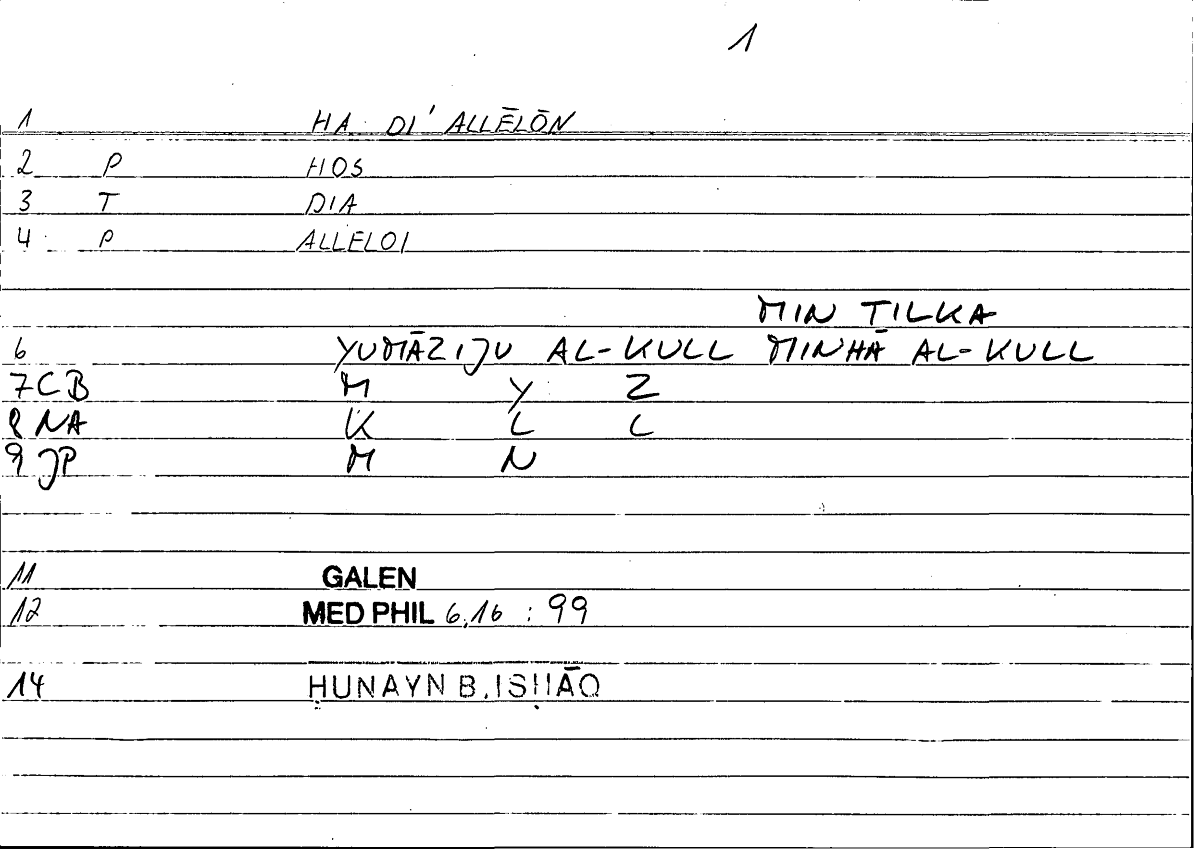 1
1 HA DI' ALLĒLŌN
2 P HOS
3 T DIA
4 P ALLELOI
MIN TILKA
6 YUMĀZIJU AL-KULL MINHĀ AL-KULL
7 CB M Y Z
8 NA K L L
9 JP M N
11 GALEN
12 MED PHIL 6,16 : 99
14 ḤUNAYN B. ISḤĀQ